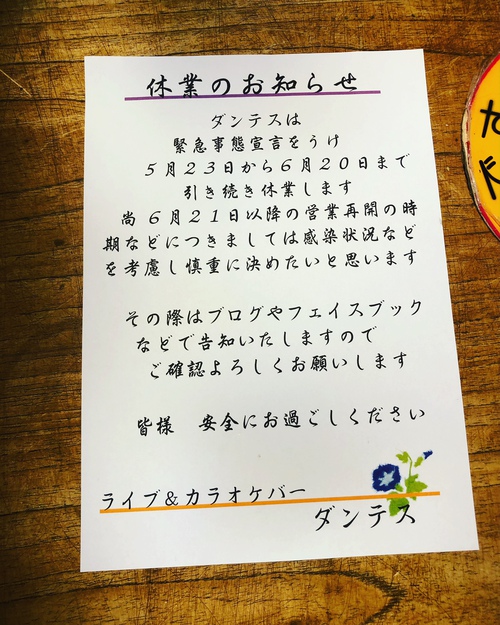 休業のお知らせ
ダンテスは
緊急事態宣言をうけ
5月23日から6月20日まで
引き続き休業します
尚 6月21日以降の営業再開の時
期などにつきましては感染状況など
を考慮し慎重に決めたいと思います
その際はブログやフェイスブック
などで告知いたしますので
ご確認よろしくお願いします
皆様 安全にお過ごしください
ライブ&カラオケバー
ダンテス